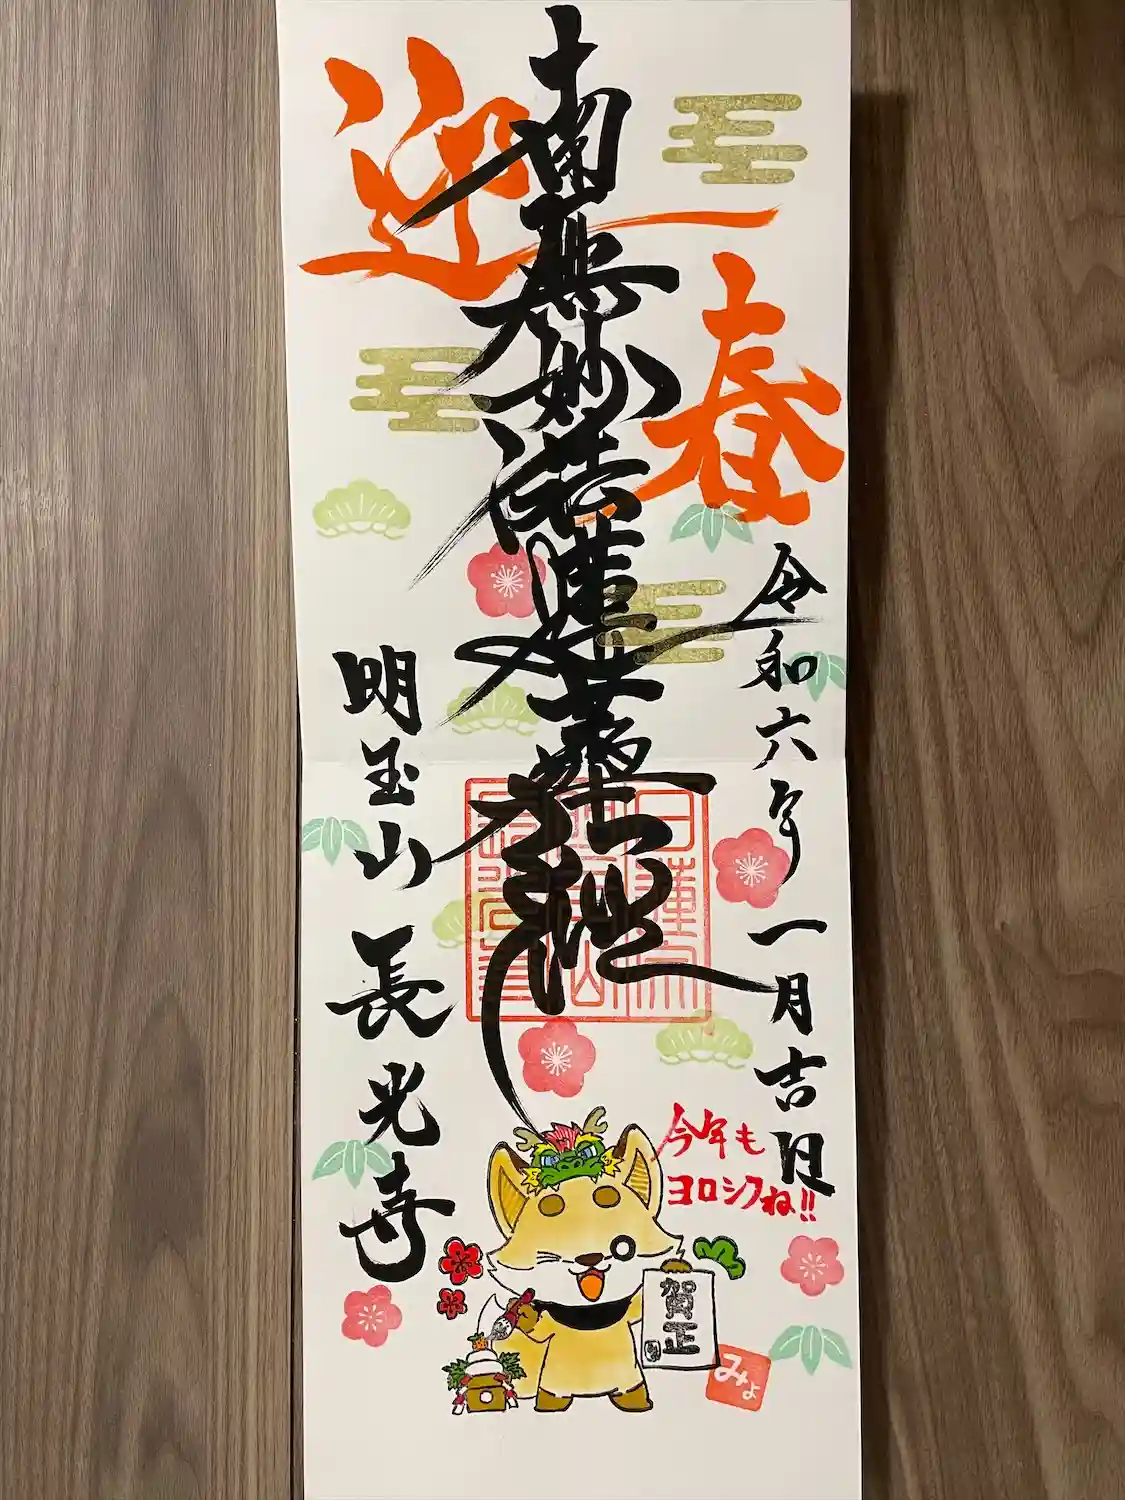 迎春
南無妙法蓮華経
令和六年一月吉日
明玉山 長光寺
今年も
ヨロシクね!!
賀正
みょ